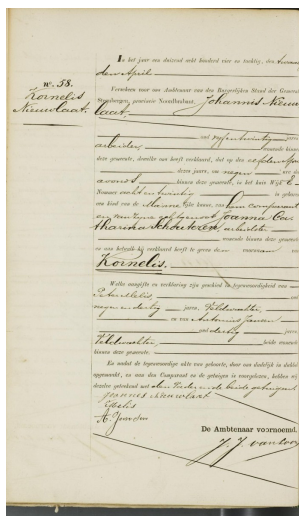 No. 58.
Kornelis
Nieuwlaat.
In het jaar een duizend acht honderd vier en tachtig, den
den April
Verscheen voor ons Ambtenaar van den Burgerlijken Stand der Gemeente
provincie Noordbrabant, Johannis Nieuw
laat,
oud vijfentwintig jaren,
arbeider, wonende binnen
deze gemeente, dewelke ons heeft verklaard, dat op den elfden April
dezer jaars, om negen ure des
avonds, binnen deze gemeente, in het huis Wijk
Nummer acht en twintig is geboren
een kind van de Mannelijke kunne, van hem comparant
en van zijne echtgenoot Joanna Ca
tharina Schoutezen, arbeidster
wonende binnen deze gemeente
en ons belast bij verklaard heeft te geven den voornaam van
Kornelis.
Welke aangifte en verklaring zijn geschied in tegenwoordigheid van
Peter Ebelis, oud
negen en dertig jaren, Veldwachter,
en van Antonius Jansen
oud dertig jaren,
Veldwachter, beide wonende
binnen deze gemeente.
En nadat de tegenwoordige akte van geboorte, daar van dadelijk in dubbel
opgemaakt, en aan den Comparant en de getuigen is voorgelezen, hebben wij
dezelve geteekend met den Vader en de beide getuigen
Joannes Nieuwlaat
A. Jansen
De Ambtenaar voornoemd,
J. J. van